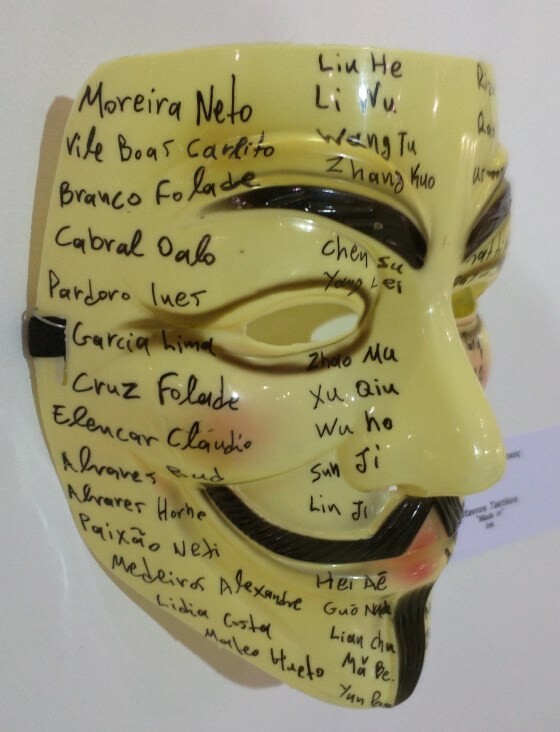 Moreira Neto
Vile Boas Carlito
Branco Folade
Cabral Dalo
Pardoro Ines
Garcia Lima
Cruz Folade
Elencar Cláudio
Alvares Bud
Alvares Horhe
Paixão Neti
Medeiros Alexandre
Lidia Costa
Mateo Hueto
Liu He
Li Wu
Wang Tu
Zhang Kuo
Chen Su
Yang Lei
Zhao Ma
Xu Qiu
Wu ho
Sun Ji
Lin Ji
Hei Aē
Guō
Lian chu
Mǎ Be.
Yun
"Made in"